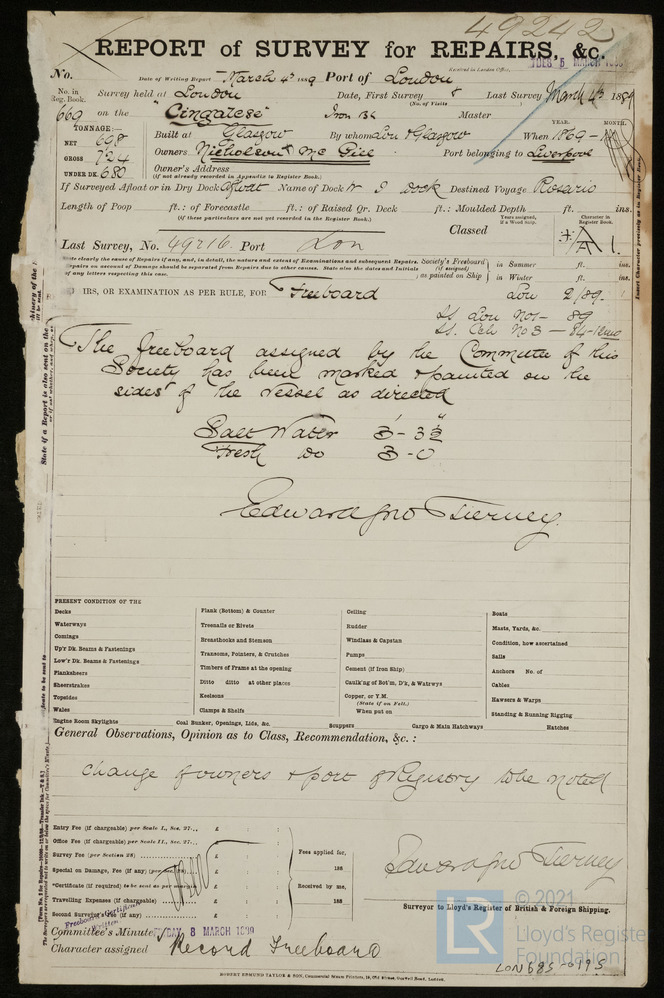 49242
REPORT of SURVEY for REPAIRS, &c.
No. Date of Writing Report March 4th 1889 Port of London
Received in London Office,
TUES 5 MARCH
No. in Reg. Book. Survey held at London Date, First Survey Last Survey March 4th 1889
(No. of Visits)
669 on the "Cingalese" Iron Bk Master
TONNAGE:—
NET 698
GROSS 724
UNDER DK. 680
YEAR. MONTH.
Built at Glasgow By whom Lon & Glasgow When 1869 -
Owners Nicholson & Mc Gill Port belonging to Liverpool
Owner's Address
(If not already recorded in Appendix to Register Book.)
If Surveyed Afloat or in Dry Dock Afloat Name of Dock W I Dock Destined Voyage Rosario
Length of Poop ft.: of Forecastle ft.: of Raised Qr. Deck ft.: Moulded Depth ft. ins.
(If these particulars are not yet recorded in the Register Book.)
Years assigned, if a Wood Ship. Character in Register Book.
Classed A 1.
Last Survey, No. 49216 Port Lon
State clearly the cause of Repairs if any, and, in detail, the nature and extent of Examinations and subsequent Repairs.
Repairs on account of Damage should be separated from Repairs due to other causes. State also the dates and Initials of any letters respecting this case.
Society's Freeboard (if assigned) as painted on Ship in Summer ft. ins.
in Winter ft. ins.
IRS, OR EXAMINATION AS PER RULE, FOR Freeboard
Lon 2/89.
SS Lon No1 - 89
SS. Cal. No 3 - 84 - 12mo
The freeboard assigned by the Committee of this
Society has been marked & painted on the
sides of the vessel as directed
Salt Water 3'- 3½"
Fresh do 3 - 0
Edward Jno Tierney.
PRESENT CONDITION OF THE
Decks
Waterways
Comings
Up'r Dk. Beams & Fastenings
Low'r Dk. Beams & Fastenings
Planksheers
Sheerstrakes
Topsides
Wales
Engine Room Skylights
Plank (Bottom) & Counter
Treenails or Rivets
Breasthooks and Stemson
Transoms, Pointers, & Crutches
Timbers of Frame at the opening
Ditto ditto at other places
Keelsons
Clamps & Shelfs
Coal Bunker, Openings, Lids, &c.
Ceiling
Rudder
Windlass & Capstan
Pumps
Cement (if Iron Ship)
Caulk'ng of Bot'm, D'k, & Watrwys
Copper, or Y.M.
(State if on Felt.)
When put on
Scuppers
Cargo & Main Hatchways
Boats
Masts, Yards, &c.
Condition, how ascertained
Sails
Anchors No. of
Cables
Hawsers & Warps
Standing & Running Rigging
Hatches
General Observations, Opinion as to Class, Recommendation, &c. :
Change of owners & port of Registry to be noted
Entry Fee (if chargeable) per Scale I., Sec. 27... £ : :
Office Fee (if chargeable) per Scale II., Sec. 27... £ : :
Survey Fee (per Section 28) £ : :
Special on Damage, Fee (if any) (per Sec. 28) £ : :
*Certificate (if required) to be sent as per margin £ : :
Travelling Expenses (if chargeable) £ : :
Second Surveyor's Fee (if any) £ : :
Fees applied for,
188
Received by me,
188
Edward Jno Tierney
Surveyor to Lloyd's Register of British & Foreign Shipping.
Freeboard Certificate Written
Committee's Minute FRIDAY 8 MARCH 1889
Character assigned Record Freeboard
© 2021
LR
Lloyd's Register Foundation
LON685-0195
ROBERT EDMUND TAYLOR & SON, Commercial Steam Printers, 19, Old Street, Goswell Road, London.